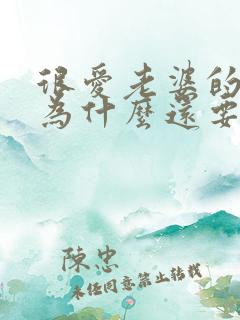 很愛老婆的
為什麼還要
陳忠
未經同意禁止轉載